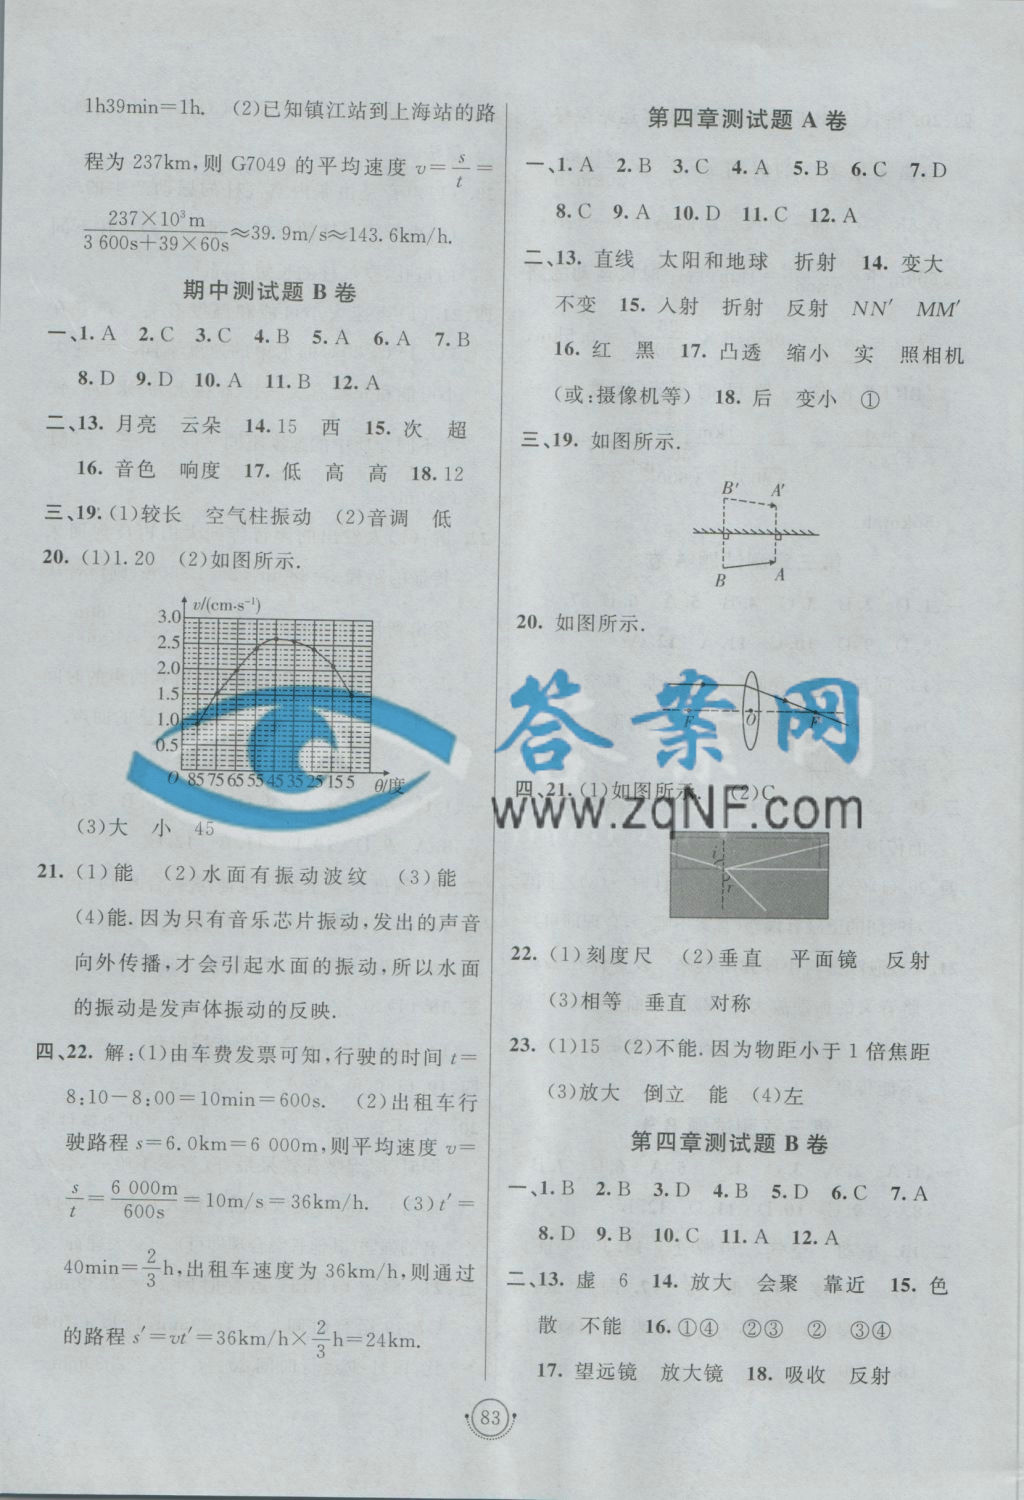 1h39min=1h. (2)已知镇江站到上海站的路
程为 237km,则 G7049 的平均速度 v=s/t=
237×10³m/3 600s+39×60s≈39.9m/s≈143.6km/h.
期中测试题 B 卷
一、1. A 2. C 3. C 4. B 5. A 6. A 7. B
8. D 9. D 10. A 11. B 12. A
二、13. 月亮 云朵 14. 15 西 15. 次 超
16. 音色 响度 17. 低 高 高 18. 12
三、19. (1)较长 空气柱振动 (2)音调 低
20. (1)1.20 (2)如图所示.
v/(cm·s⁻¹)
3.0
2.5
2.0
1.5
1.0
0.5
O 85 75 65 55 45 35 25 15 5 θ/度
(3)大 小 45
21. (1)能 (2)水面有振动波纹 (3)能
(4)能.因为只有音乐芯片振动,发出的声音
向外传播,才会引起水面的振动,所以水面
的振动是发声体振动的反映.
四、22. 解:(1)由车费发票可知,行驶的时间 t=
8:10-8:00=10min=600s. (2)出租车行
驶路程 s=6.0km=6 000m,则平均速度 v=
s/t=6 000m/600s=10m/s=36km/h. (3)t′=
40min=2/3h,出租车速度为 36km/h,则通过
的路程 s′=vt′=36km/h×2/3h=24km.
第四章测试题 A 卷
一、1. A 2. B 3. C 4. A 5. B 6. C 7. D
8. C 9. A 10. D 11. C 12. A
二、13. 直线 太阳和地球 折射 14. 变大
不变 15. 入射 折射 反射 NN′ MM′
16. 红 黑 17. 凸透 缩小 实 照相机
(或:摄像机等) 18. 后 变小 ①
三、19. 如图所示.
B′ A′
B A
20. 如图所示.
F O F
答案网
四、21. (1)如图所示. (2)C
www.zqNF.com
i
r
22. (1)刻度尺 (2)垂直 平面镜 反射
(3)相等 垂直 对称
23. (1)15 (2)不能.因为物距小于 1 倍焦距
(3)放大 倒立 能 (4)左
第四章测试题 B 卷
一、1. B 2. B 3. D 4. B 5. D 6. C 7. A
8. D 9. B 10. C 11. A 12. A
二、13. 虚 6 14. 放大 会聚 靠近 15. 色
散 不能 16. ①④ ②③ ② ③④
17. 望远镜 放大镜 18. 吸收 反射
83